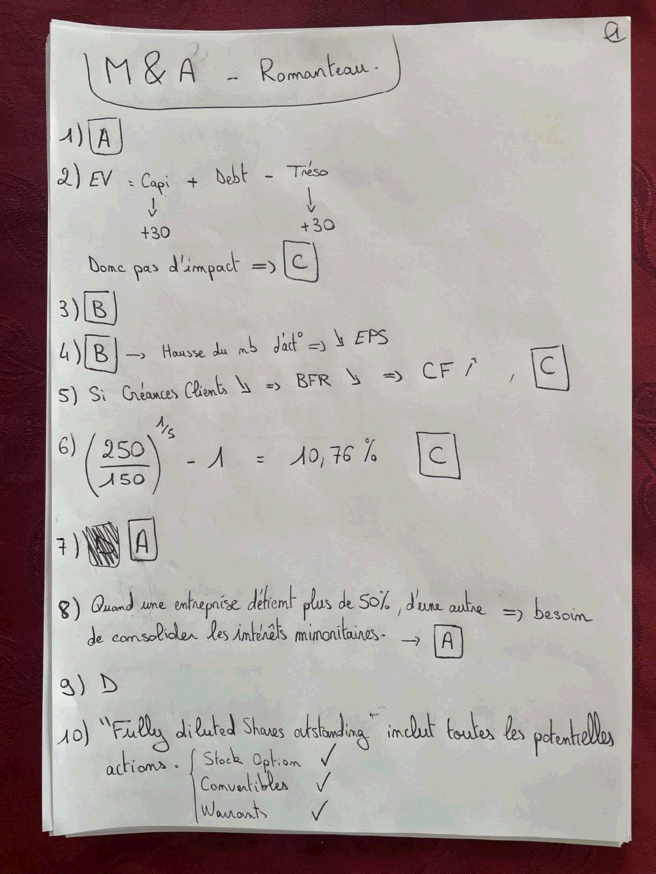 1
M & A - Romanteau.
1) A
2) EV = Capi + Debt - Tréso
↓ ↓
+30 +30
Donc pas d'impact => C
3) B
4) B → Hausse du nb d'act° => ↘ EPS
5) Si Créances Clients ↘ => BFR ↘ => CF ↗, C
6) (250/150)^1/5 - 1 = 10,76 % C
7) A
8) Quand une entreprise détient plus de 50%, d'une autre => besoin
de consolider les intérêts minoritaires. → A
9) D
10) "Fully diluted Shares outstanding" inclut toutes les potentielles
actions. { Stock Option ✓
Convertibles ✓
Warrants ✓